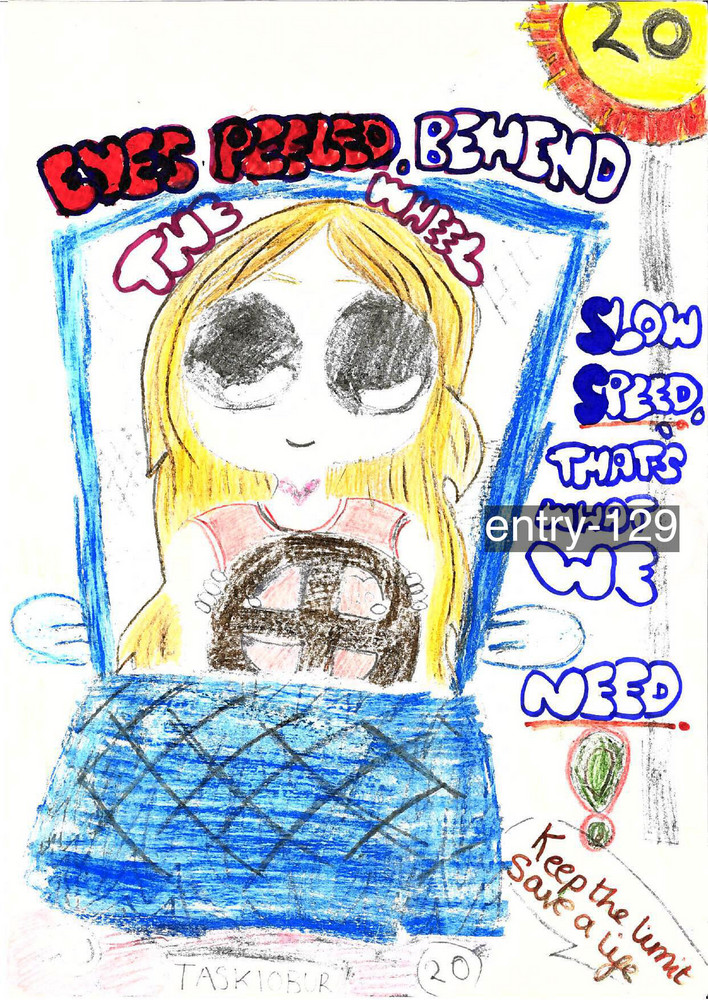 20
EYES PEELED. BEHIND
THE WHEEL
SLOW
SPEED.
THAT'S
WHAT
WE
NEED.
!
entry-129
Keep the limit
Save a life
TASKIOBUR
20